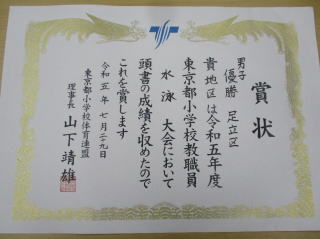 賞状
男子
優勝 足立区
貴地区は令和五年度
東京都小学校教職員
水泳 大会において
頭書の成績を収めたので
これを賞します
令和五年七月二十九日
東京都小学校体育連盟
理事長 山下靖雄